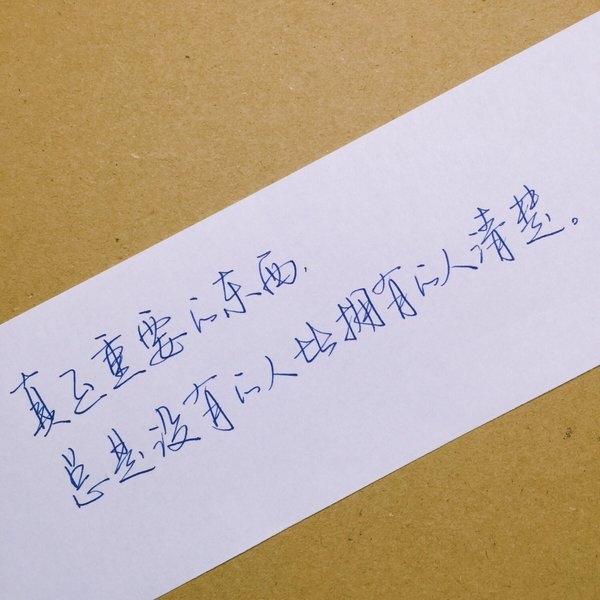 真正重要的东西,
总是没有的人比拥有的人清楚。